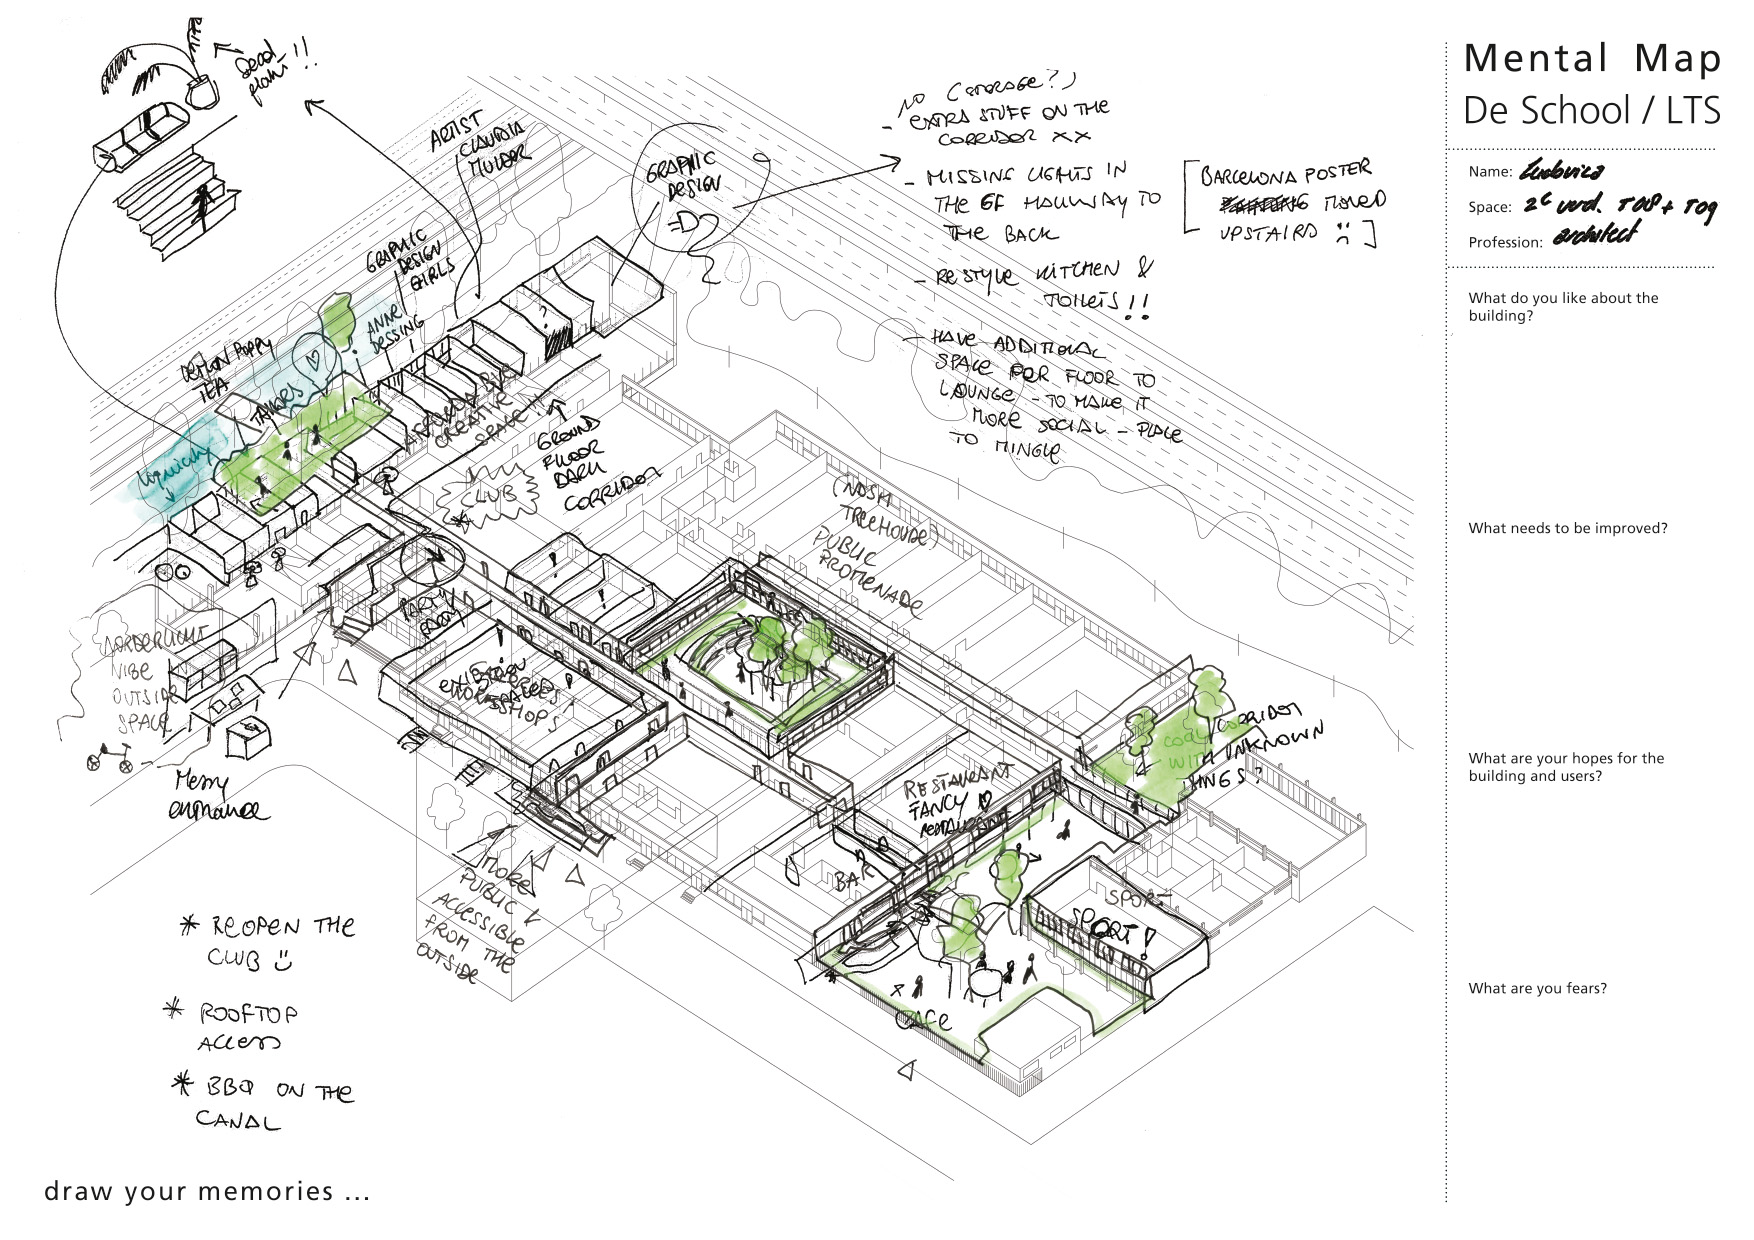 Mental Map
De School / LTS
Name: Ludovica
Space: 2e verd. T08 + T09
Profession: architect
What do you like about the
building?
What needs to be improved?
What are your hopes for the
building and users?
What are you fears?
Dead
plant !!
ARTIST
CLAUDIA
MULDER
GRAPHIC
DESIGN
NO (
- EXTRA STUFF ON THE
CORRIDOR XX
- MISSING LIGHTS IN
THE GF HALLWAY TO
THE BACK
[BARCELONA POSTER
MOVED
UPSTAIRS :( ]
- RESTYLE KITCHEN &
TOILETS !!
- HAVE ADDITIONAL
SPACE PER FLOOR TO
LOUNGE - TO MAKE IT
MORE SOCIAL - PLACE
TO MINGLE
GRAPHIC
DESIGN
GIRLS
ANNE
DESSING
?
POPPY
TEA
TAILORS
CREATIVE
SPACE!
GROUND
FLOOR
DARK
CORRIDOR
CLUB
*
(NOSH
TREEHOUSE)
PUBLIC
PROMENADE
PARTY
VIBE
OUTSIDE
SPACE
Messy
entrance
WORKSHOPS
make
PUBLIC &
ACCESSIBLE
FROM THE
OUTSIDE
RESTAURANT
FANCY
RESTAURANT
BAR
CORRIDOR
WITH UNKNOWN
THINGS?
SPORT
SPORT!
CAFE
* REOPEN THE
CLUB :)
* ROOFTOP
ACCESS
* BBQ ON THE
CANAL
draw your memories ...